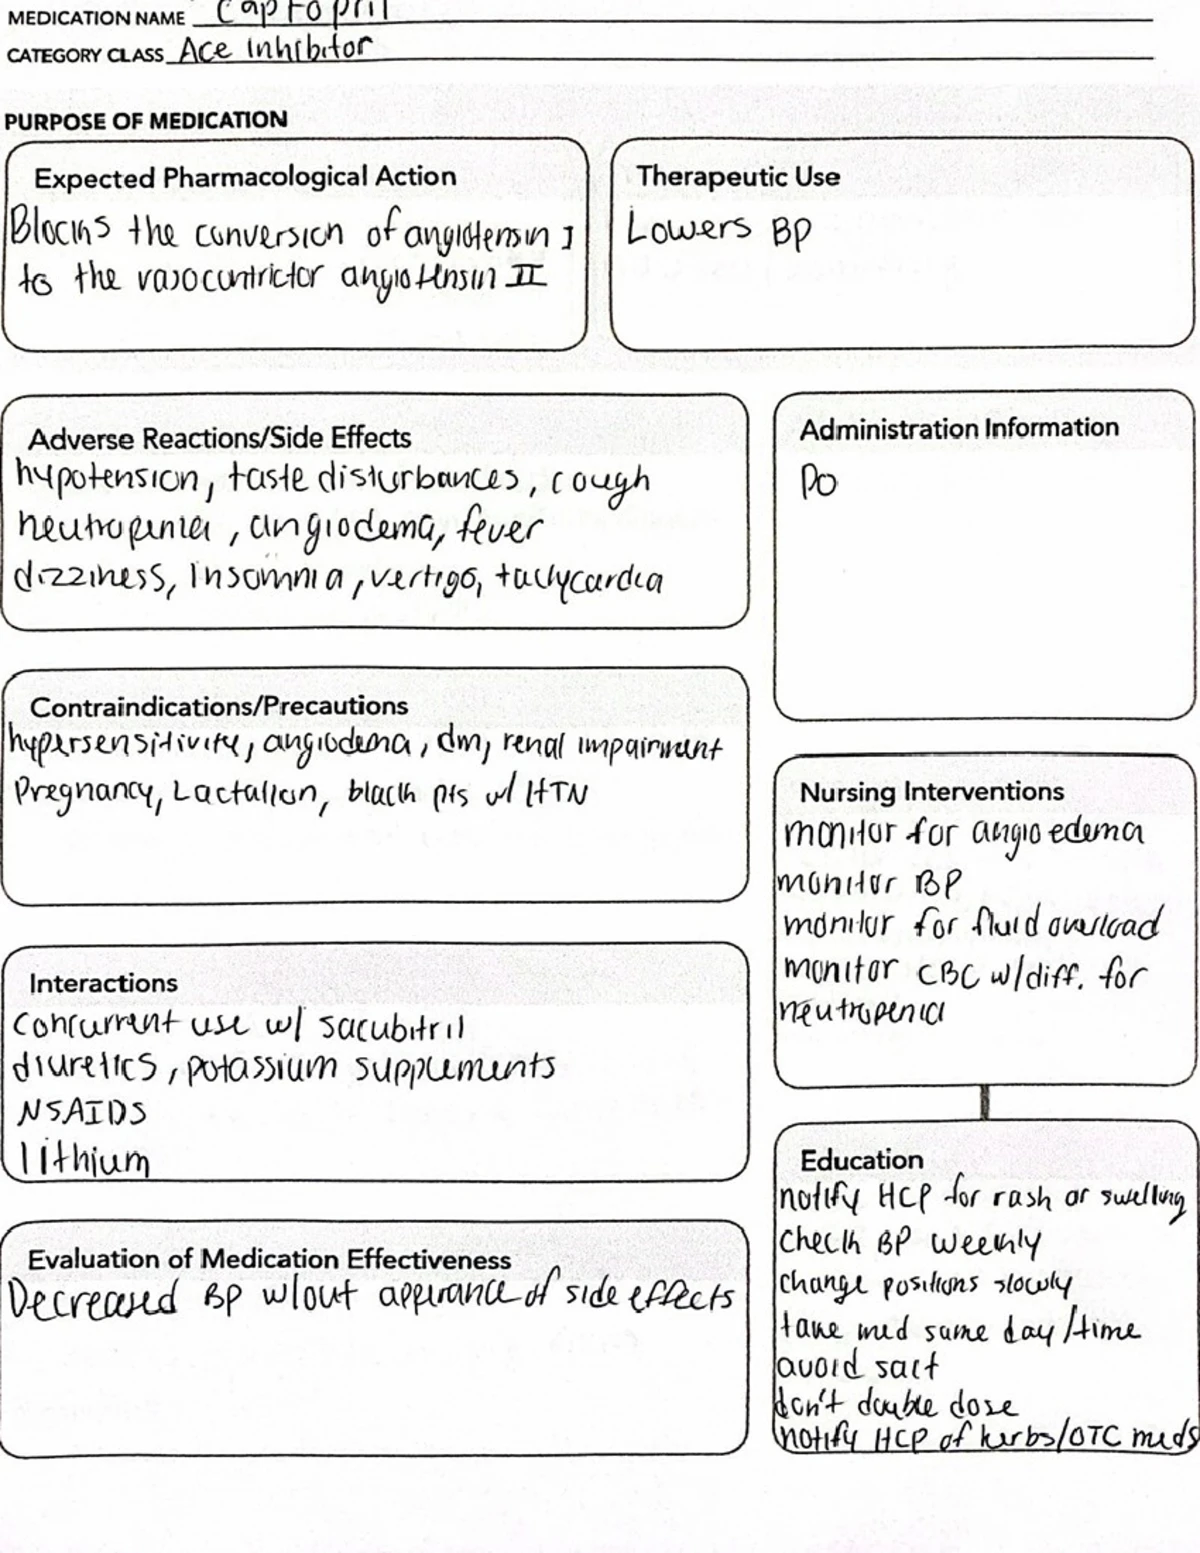 MEDICATION NAME Captopril
CATEGORY CLASS Ace inhibitor
PURPOSE OF MEDICATION
Expected Pharmacological Action
Blocks the conversion of angiotensin I
to the vasocontrictor angiotensin II
Therapeutic Use
Lowers BP
Adverse Reactions/Side Effects
hypotension, taste disturbances, cough
neutropenia, angiodema, fever
dizziness, insomnia, vertigo, tachycardia
Administration Information
PO
Contraindications/Precautions
hypersensitivity, angiodema, dm, renal impairment
Pregnancy, Lactation, black pts w/ HTN
Nursing Interventions
monitor for angioedema
monitor BP
monitor for fluid overload
monitor CBC w/diff. for
neutropenia
Interactions
concurrent use w/ sacubitril
diuretics, potassium supplements
NSAIDS
lithium
Education
notify HCP for rash or swelling
check BP weekly
change positions slowly
take med same day/time
avoid salt
don't double dose
notify HCP of herbs/OTC meds
Evaluation of Medication Effectiveness
Decreased BP w/out apperance of side effects